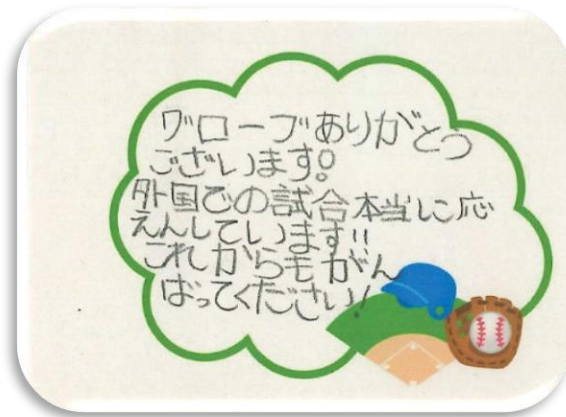 グローブありがとう
ございます。
外国での試合本当に応
えんしています!!
これからもがん
ばってください!